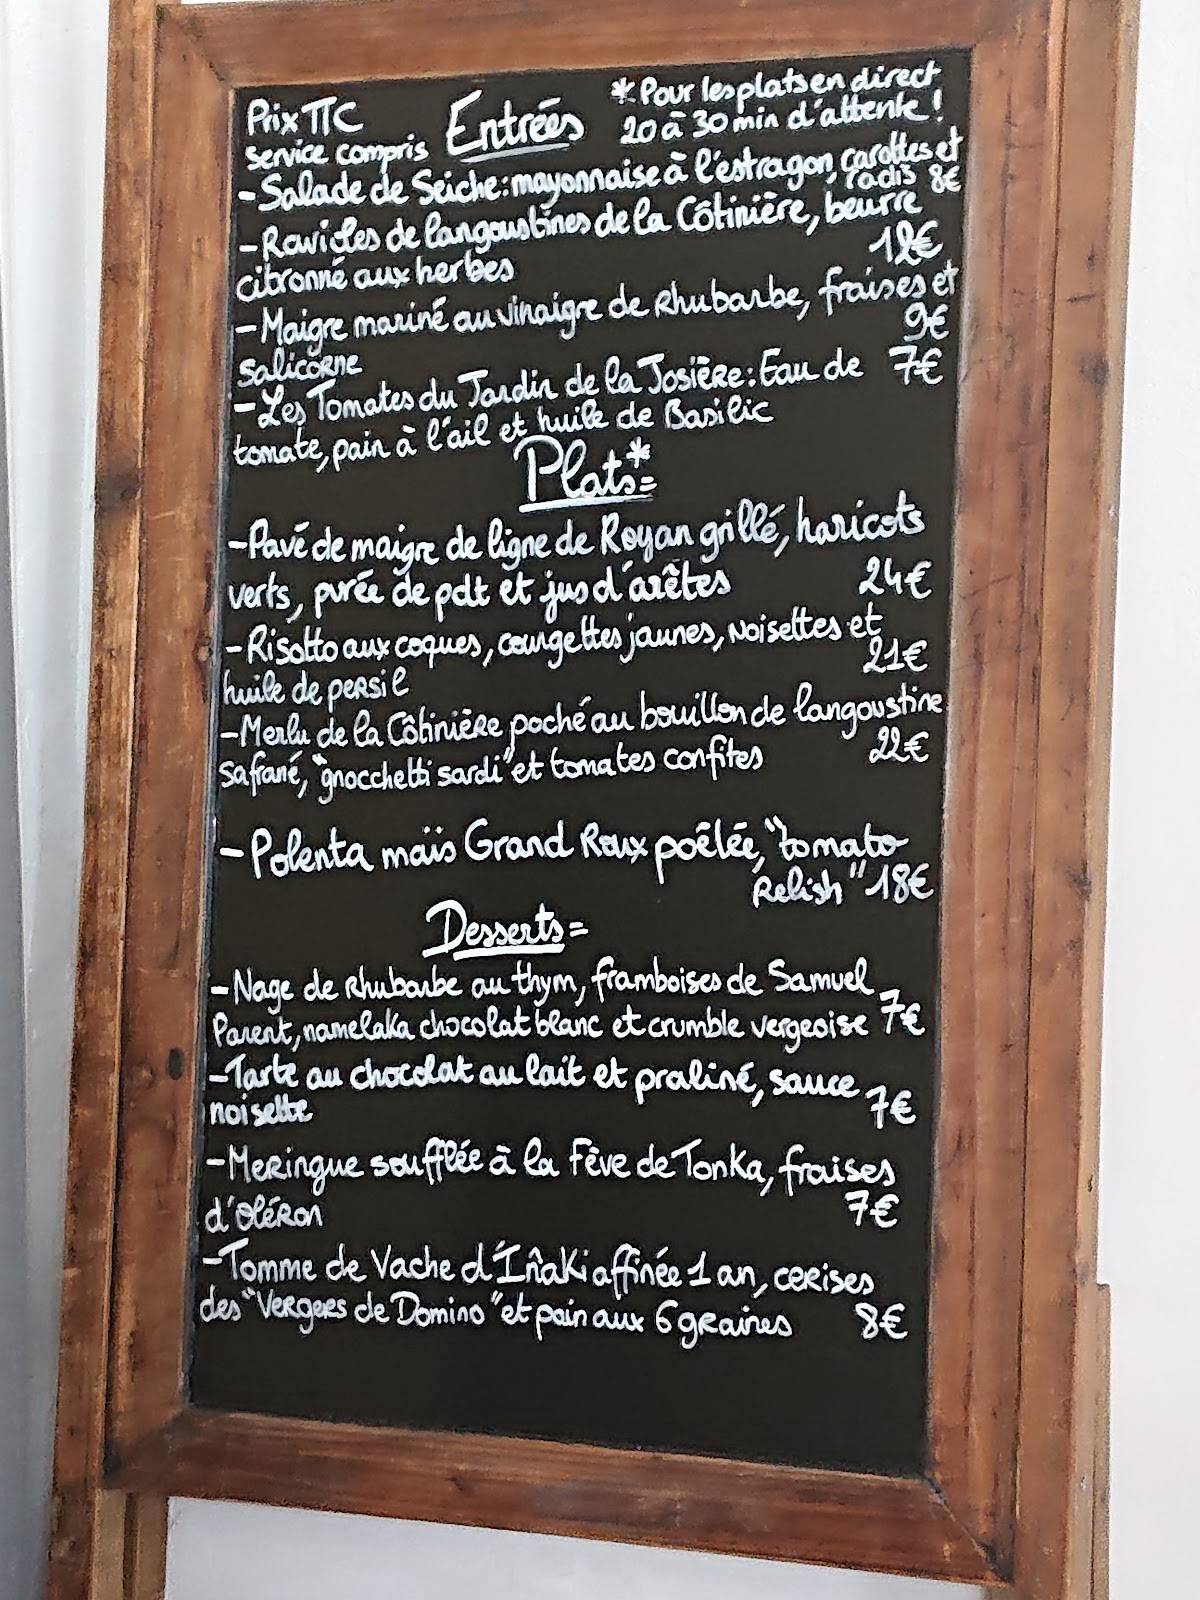 Prix TTC
Service compris
Entrées
* Pour les plats en direct
20 à 30 min d'attente !
- Salade de Seiche : mayonnaise à l'estragon, carottes et
radis 8€
- Ravioles de langoustines de la Côtinière, beurre
citronné aux herbes 12€
- Maigre mariné au vinaigre de Rhubarbe, fraises et
Salicorne 9€
- Les Tomates du Jardin de la Josière : Eau de 7€
tomate, pain à l'ail et huile de Basilic
Plats* =
- Pavé de maigre de ligne de Royan grillé, haricots
verts, purée de pdt et jus d'arêtes 24€
- Risotto aux coques, courgettes jaunes, Noisettes et
huile de persil 21€
- Merlu de la Côtinière poché au bouillon de langoustine
Safrané, "gnocchetti sardi" et tomates confites 22€
- Polenta maïs Grand Roux poêlée, "tomato
Relish" 18€
Desserts =
- Nage de rhubarbe au thym, framboises de Samuel
Parent, namelaka chocolat blanc et crumble vergeoise 7€
- Tarte au chocolat au lait et praliné, sauce
noisette 7€
- Meringue soufflée à la Fève de Tonka, fraises
d'Oléron 7€
- Tomme de Vache d'Iñaki affinée 1 an, cerises
des "Vergers de Domino" et pain aux 6 graines 8€